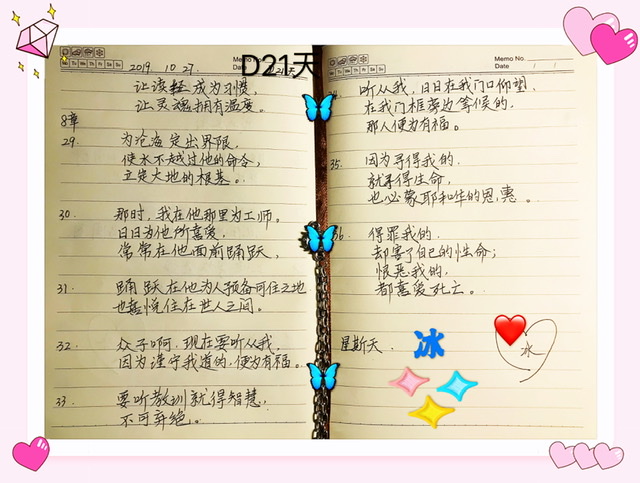 Memo No.
Mo Tu We Th Fr Sa Su
Date
2019 10 27.
D21天
让读经成为习惯,
让灵魂拥有温度。
8章
29. 为沧海定出界限,
使水不越过他的命令,
立定大地的根基。
30. 那时,我在他那里为工师。
日日为他所喜爱,
常常在他面前踊跃,
31. 踊跃在他为人预备可住之地
也喜悦住在世人之间。
32. 众子啊,现在要听从我,
因为谨守我道的,便为有福。
33. 要听教训就得智慧,
不可弃绝。
Mo Tu We Th Fr Sa Su
Memo No.
Date / /
听从我,日日在我门口仰望,
在我门框旁边等候的,
那人便为有福。
35. 因为寻得我的,
就寻得生命,
也必蒙耶和华的恩惠。
36. 得罪我的,
却害了自己的性命;
恨恶我的,
都喜爱死亡。
星斯天 冰
冰